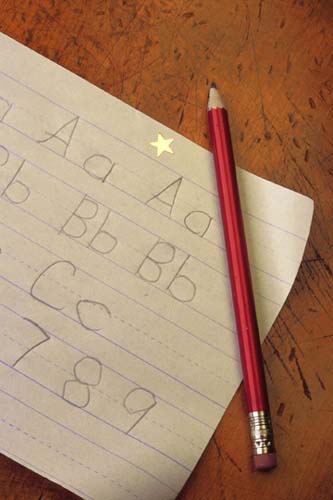 Aa Aa
b Bb Bb
Cc
7 8 9